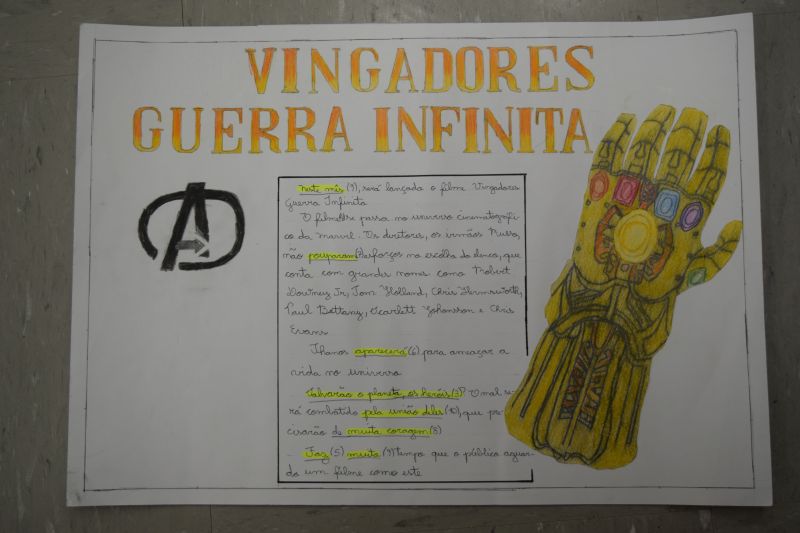 VINGADORES
GUERRA INFINITA
neste mês (9), será lançada o filme Vingadores
Guerra Infinita
O filme se passa no universo cinematográfi-
co da marvel. Os diretores, os irmãos Russo,
não pouparam esforços na escolha do elenco, que
conta com grandes nomes como Robert
Downey Jr, Tom Holland, Chris Hermsworth,
Paul Bettany, Scarlett Johonsson e Chris
Evans
Thanos aparecerá (6) para ameaçar a
vida no universo
Salvarão o planeta, os heróis (3)? O mal se-
rá combatido pela união deles (10), que pre-
cisarão de muita coragem (8)
Faz (5) muito (9) tempo que o público aguar-
da um filme como este